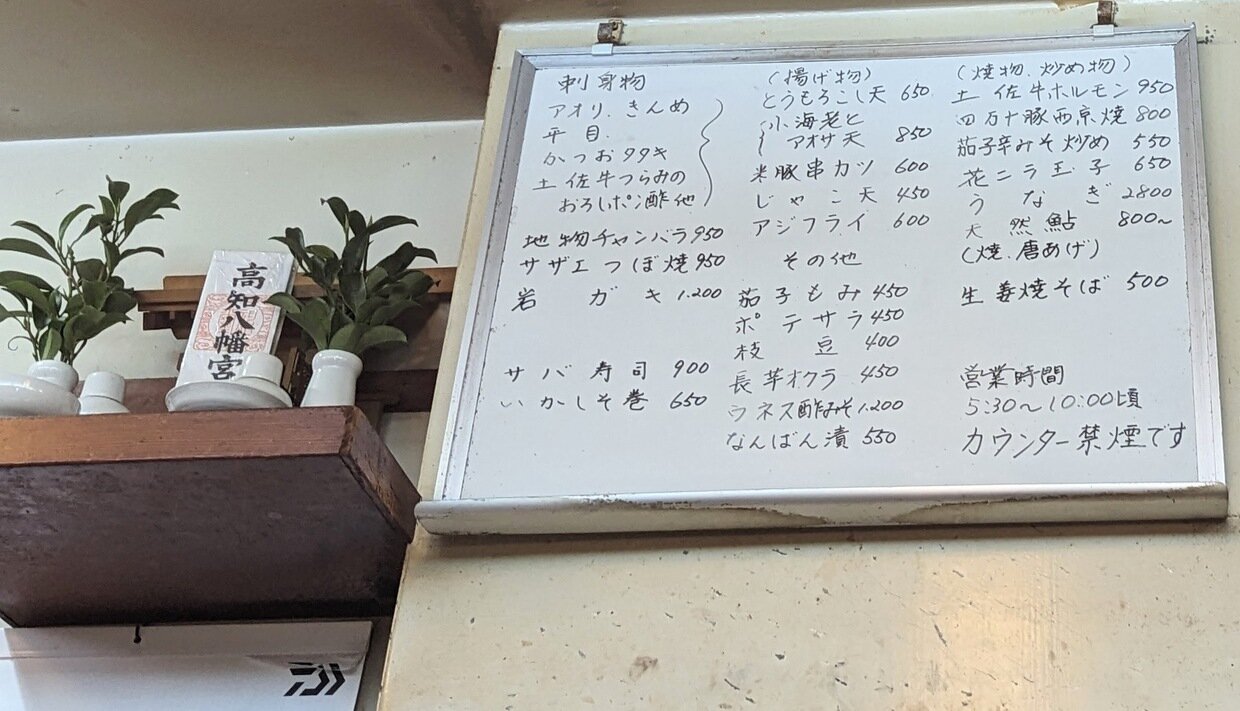 刺身物
アオリ、きんめ
平目、
かつおタタキ
土佐牛つらみの
おろしポン酢他
地物チャンバラ 950
サザエつぼ焼 950
岩ガキ 1.200
サバ寿司 900
いかしそ巻 650
(揚げ物)
とうもろこし天 650
小海老と
アオサ天 850
米豚串カツ 600
じゃこ天 450
アジフライ 600
その他
茄子もみ 450
ポテサラ 450
枝豆 400
長芋オクラ 450
ウネス酢みそ 1.200
なんばん漬 550
(焼物、炒め物)
土佐牛ホルモン 950
四万十豚西京焼 800
茄子辛みそ炒め 550
花ニラ玉子 650
うなぎ 2800
天然鮎 800~
(焼、唐あげ)
生姜焼そば 500
営業時間
5:30~10:00頃
カウンター禁煙です
高知八幡宮